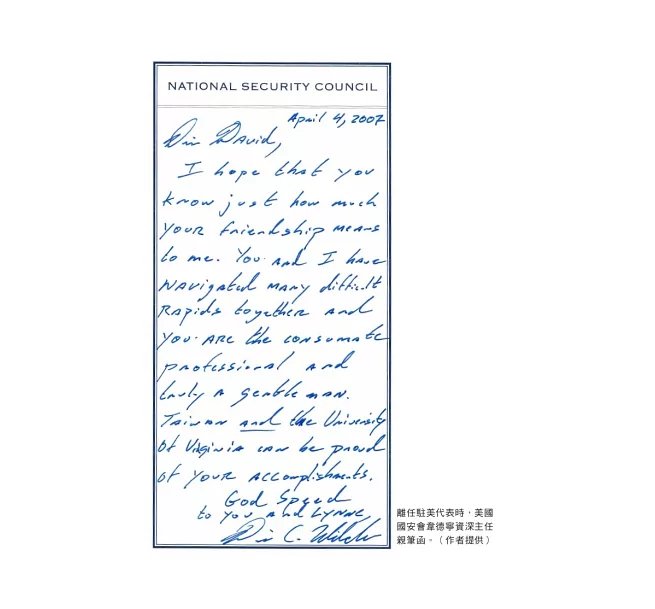 NATIONAL SECURITY COUNCIL
April 4, 2007
Dear David,
I hope that you
know just how much
your friendship means
to me. You and I have
navigated many difficult
rapids together and
you are the consumate
professional and
truly a gentleman.
Taiwan and the University
of Virginia can be proud
of your accomplishments.
God Speed
to you and Lynne,
C. Wilder
離任駐美代表時，美國
國安會韋德寧資深主任
親筆函。（作者提供）